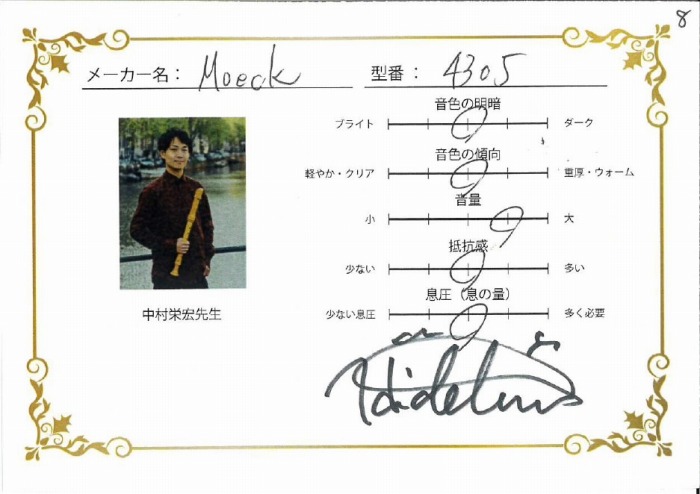 8
メーカー名： Moeck 型番： 4305
音色の明暗
ブライト ダーク
音色の傾向
軽やか・クリア 重厚・ウォーム
音量
小 大
抵抗感
少ない 多い
息圧（息の量）
少ない息圧 多く必要
中村栄宏先生